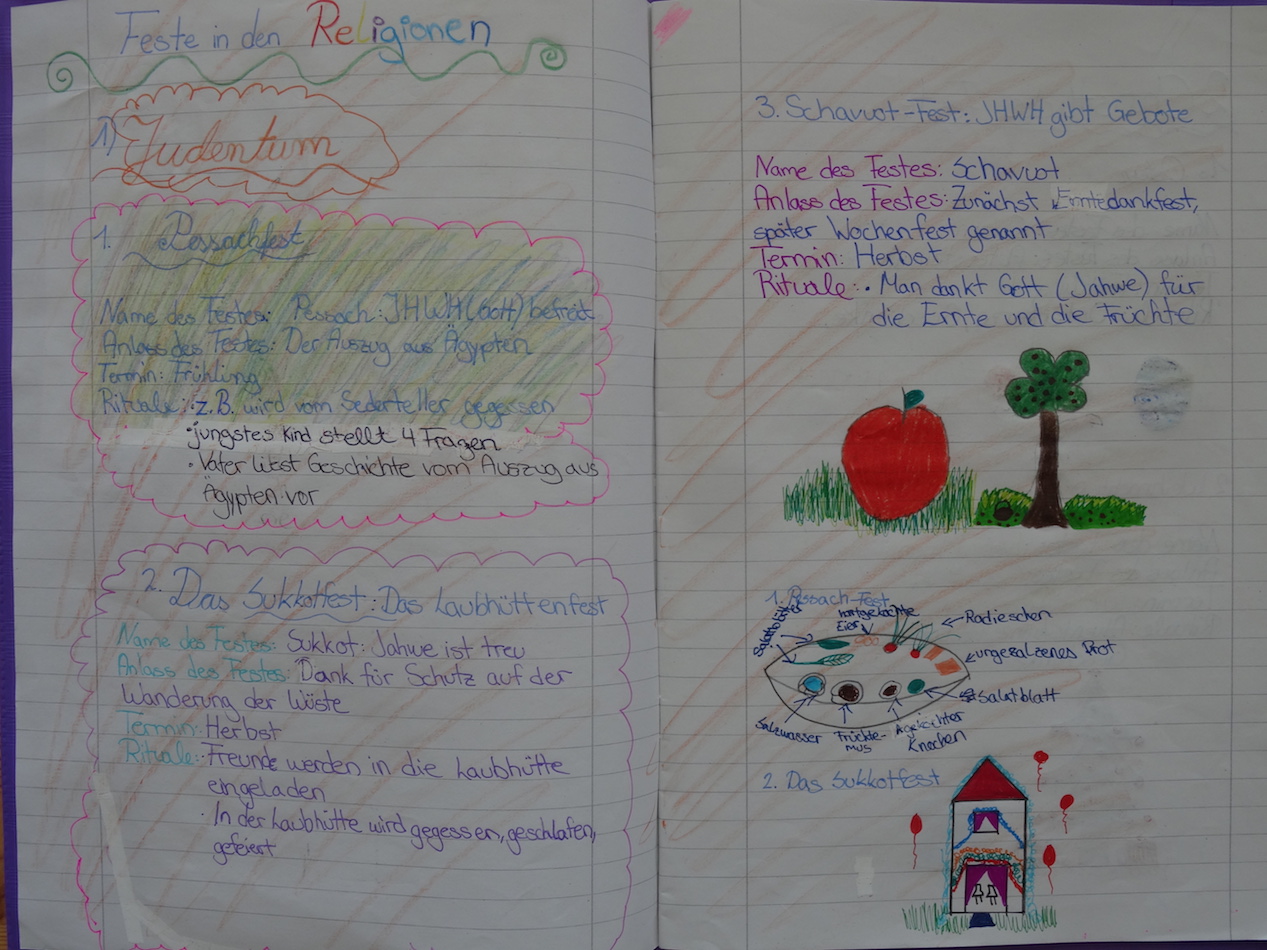 Feste in den Religionen
1) Judentum
1. Pessachfest
Name des Festes: Pessach: JHWH (Gott) befreit
Anlass des Festes: Der Auszug aus Ägypten
Termin: Frühling
Rituale: · z.B. wird vom Sederteller gegessen
· jüngstes Kind stellt 4 Fragen
· Vater liest Geschichte vom Auszug aus
Ägypten vor
2. Das Sukkotfest: Das Laubhüttenfest
Name des Festes: Sukkot: Jahwe ist treu
Anlass des Festes: Dank für Schutz auf der
Wanderung der Wüste
Termin: Herbst
Rituale: · Freunde werden in die Laubhütte
eingeladen
· In der Laubhütte wird gegessen, geschlafen,
gefeiert
3. Schavuot-Fest: JHWH gibt Gebote
Name des Festes: Schavuot
Anlass des Festes: Zunächst Erntedankfest,
später Wochenfest genannt
Termin: Herbst
Rituale: · Man dankt Gott (Jahwe) für
die Ernte und die Früchte
1. Pessach-Fest
Salatblätter
hartgekochte
Eier
Radieschen
ungesalzenes Brot
Salatblatt
Salzwasser
Früchte-
mus
Knochen
2. Das Sukkotfest